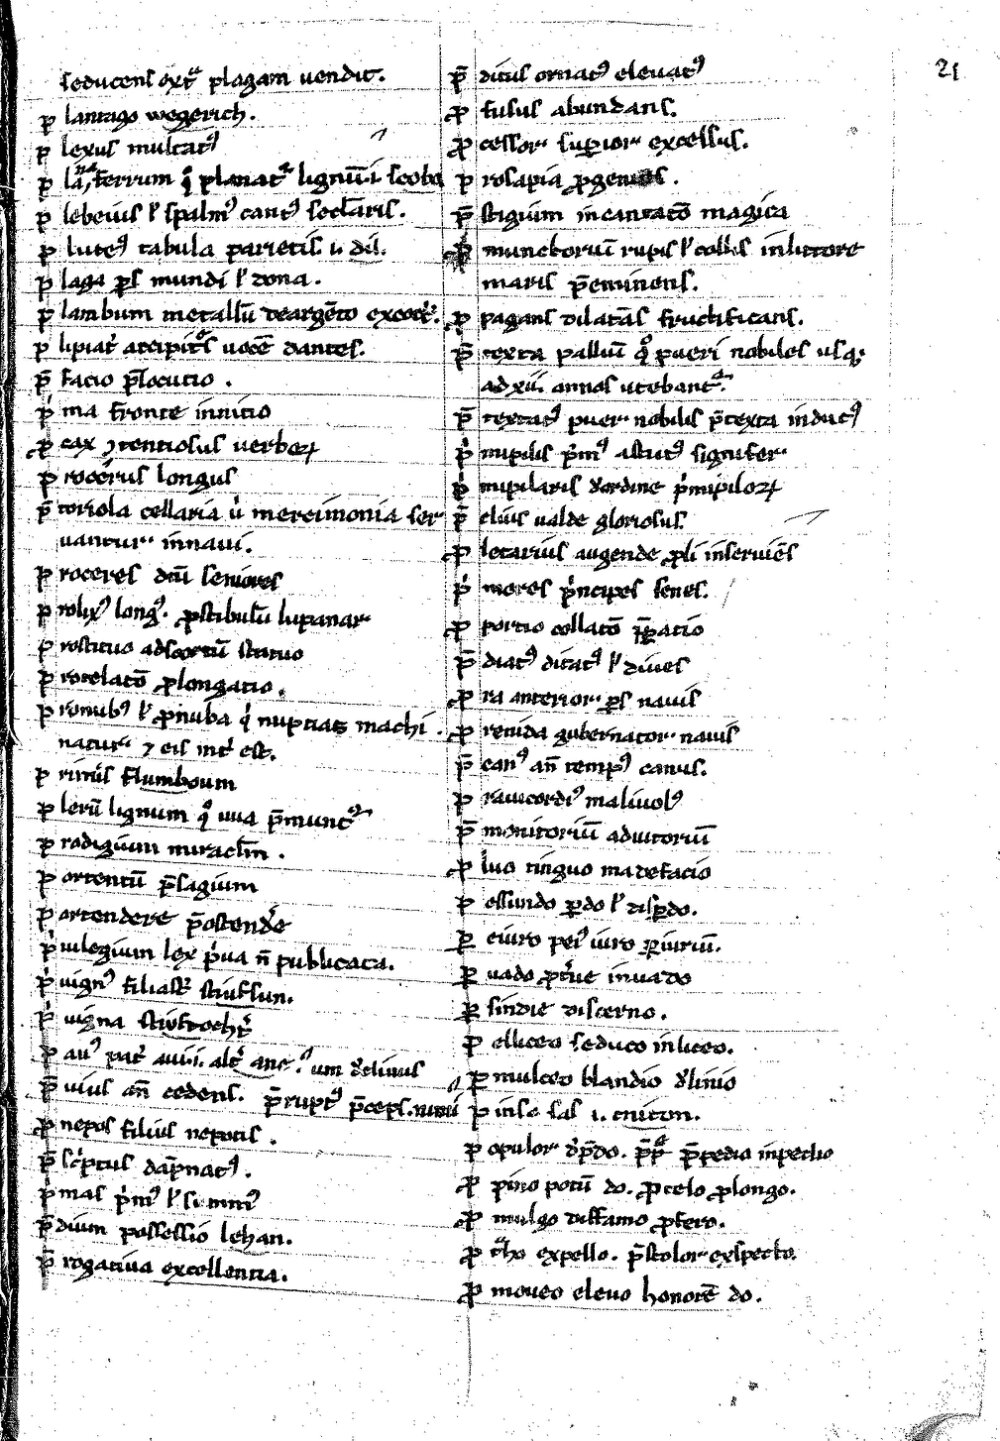 seducens extª plagam uendit.
p lantago wegerich.
p lexus multatꝰ
p laⁿᵃ, ferrum planatᷣ lignū .i. scoba
p lebeius lˀ spalmꝰ cantꝰ seclaris.
p luteꝰ tabula parietis .i. dil.
p laga ꝑs mundi lˀ zona.
p lambum metallū deargēto excoctᷣ.
p lipiat᷑ accipit᷑s uocē dantes.
p̄ facio p̄locutio .
pᷤ ma fronte innitio
ꝓ cax ꝯtentiosus uerboꝝ
p rocerus longus
p̄ toriola cellaria ū mercimonia ser
uantur innaui.
p roceres dcū seniores
p rolixꝰ longꝰ. ꝓstibulū lupanar
p rostituo adscortū statuo
p rotelatō ꝓlongatio.
p ronubꝰ lˀ ꝓnuba nuptias machi
natur ⁊ eis int᷑ est.
p rimis flumboum
p lerū lignum uua p̄muncᷣ
p rodigium miraclm̄ .
p ortentū p̄sagium
p ortendere p̄ostend᷑e
pⁱ uilegium lex pⁱua n̄ publicata.
pⁱ uignꝰ filiastᷣ stiufsun.
pⁱ uigna stiuftocht᷑
p auꝰ pat᷑ aui .i. alt᷑ ancꝰ
p̄ uius an̄ cedens. p̄ruptꝰ p̄ceps.
ꝓ nepos filius nepotis .
p̄ scⁱptus dāpnatꝰ.
pⁱ mas pⁱmꝰ lˀ summꝰ
p̄ dium possessio lehan.
p̄ rogatiua excellentia.
p̄ ditus ornatꝰ eleuatꝰ
ꝓ fusus abundans.
ꝓ cessor suꝑior excellus.
p rosapia ꝓgenies.
p̄ stigium incantatō magica
ꝓ munctoriū rupis lˀ collis inlittore
maris p̄eminens.
ꝓ pagans dilatās fructificans.
p̄ texta palliū qͦ pueri nobiles usqꝫ
ad xiii annos utebantᷣ.
p̄ textatꝰ puer nobilis p̄texta indutꝰ
pⁱ mipilis pⁱmꝰ astutꝰ signifer
pⁱ mipilaris ꝺordine pⁱmipiloꝝ
p̄ clius ualde gloriosus.
ꝓ letarius augende ꝓli inseruiēs
pⁱ mores pⁱncipes senes.
ꝓ portio collatō
p̄ diatꝰ ditatꝰ lˀ diues
ꝓ ra anterior ꝑs nauis
ꝓ reuida gubernator nauis
p̄ canꝰ an̄ tempꝰ canus.
p rauicordiꝰ maliuolꝰ
p̄ monitoriū aduitoriū
ꝓ luo tinguo madefacio
p essundo ꝑdo lˀ disꝑdo.
ꝑ eiuro peiꝰ iuro ꝑiuriū.
ꝑ uado ꝓt᷑ue inuado
ꝑ sindie discerno.
p ellicero seduco inlicero.
ꝑ mulceo blandio ꝺlinio
p
p opulor ꝺp̄do. p̄pedio inpedio
ꝓ pino potū do. ꝓcelo ꝓlongo.
ꝓ mulgo diffamo ꝓfero.
ꝓ tᷓho expello. p̄stolor exspecto.
ꝓ moueo eleuo honorē do.
21